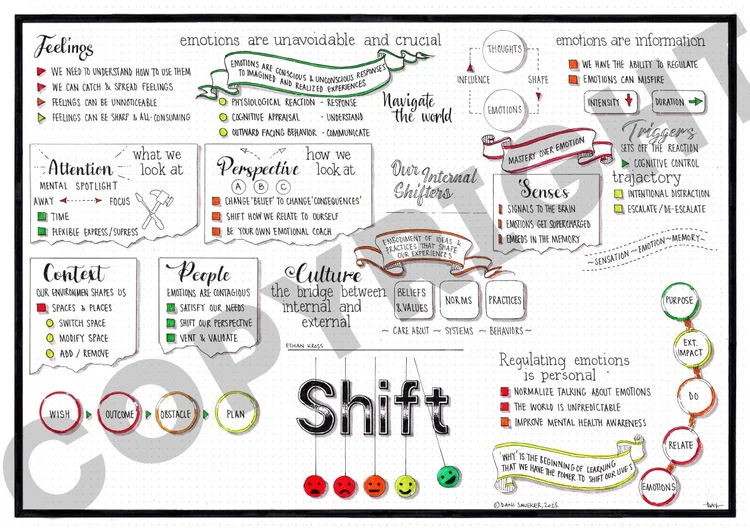 Feelings
WE NEED TO UNDERSTAND HOW TO USE THEM
WE CAN CATCH & SPREAD FEELINGS
FEELINGS CAN BE UNNOTICEABLE
FEELINGS CAN BE SHARP & ALL-CONSUMING
emotions are unavoidable and crucial
EMOTIONS ARE CONSCIOUS & UNCONSCIOUS RESPONSES
TO IMAGINED AND REALIZED EXPERIENCES
PHYSIOLOGICAL REACTION - RESPONSE
COGNITIVE APPRAISAL - UNDERSTAND
OUTWARD FACING BEHAVIOR - COMMUNICATE
Navigate
the world
THOUGHTS
INFLUENCE
SHAPE
EMOTIONS
emotions are information
WE HAVE THE ABILITY TO REGULATE
EMOTIONS CAN MISFIRE
INTENSITY
DURATION
MASTERY OVER EMOTION
Triggers
SETS OFF THE REACTION
COGNITIVE CONTROL
trajactory
INTENTIONAL DISTRACTION
ESCALATE/DE-ESCALATE
Attention
what we
look at
MENTAL SPOTLIGHT
AWAY
FOCUS
TIME
FLEXIBLE EXPRESS/SUPRESS
Perspective
how we
look at
A
B
C
CHANGE 'BELIEF' TO CHANGE 'CONSEQUENCES'
SHIFT HOW WE RELATE TO OURSELF
BE YOUR OWN EMOTIONAL COACH
Our Internal
Shifters
Senses
SIGNALS TO THE BRAIN
EMOTIONS GET SUPERCHARGED
EMBEDS IN THE MEMORY
~SENSATION~EMOTION~MEMORY~
Context
OUR ENVIRONMEN SHAPES US
SPACES & PLACES
SWITCH SPACE
MODIFY SPACE
ADD / REMOVE
People
EMOTIONS ARE CONTAGIOUS
SATISFY OUR NEEDS
SHIFT OUR PERSPECTIVE
VENT & VALIDATE
EMBODIMENT OF IDEAS &
PRACTICES THAT SHAPE
OUR EXPERIENCES
Culture
the bridge between
internal and
external
BELIEFS
& VALUES
NORMS
PRACTICES
~ CARE ABOUT ~ SYSTEMS ~ BEHAVIORS ~
ETHAN KROSS
Shift
WISH
OUTCOME
OBSTACLE
PLAN
PURPOSE
EXT.
IMPACT
DO
RELATE
EMOTIONS
Regulating emotions
is personal
NORMALIZE TALKING ABOUT EMOTIONS
THE WORLD IS UNPREDICTABLE
IMPROVE MENTAL HEALTH AWARENESS
'WHY' IS THE BEGINNING OF LEARNING
THAT WE HAVE THE POWER TO SHIFT OUR LIVES
COPYRIGHT